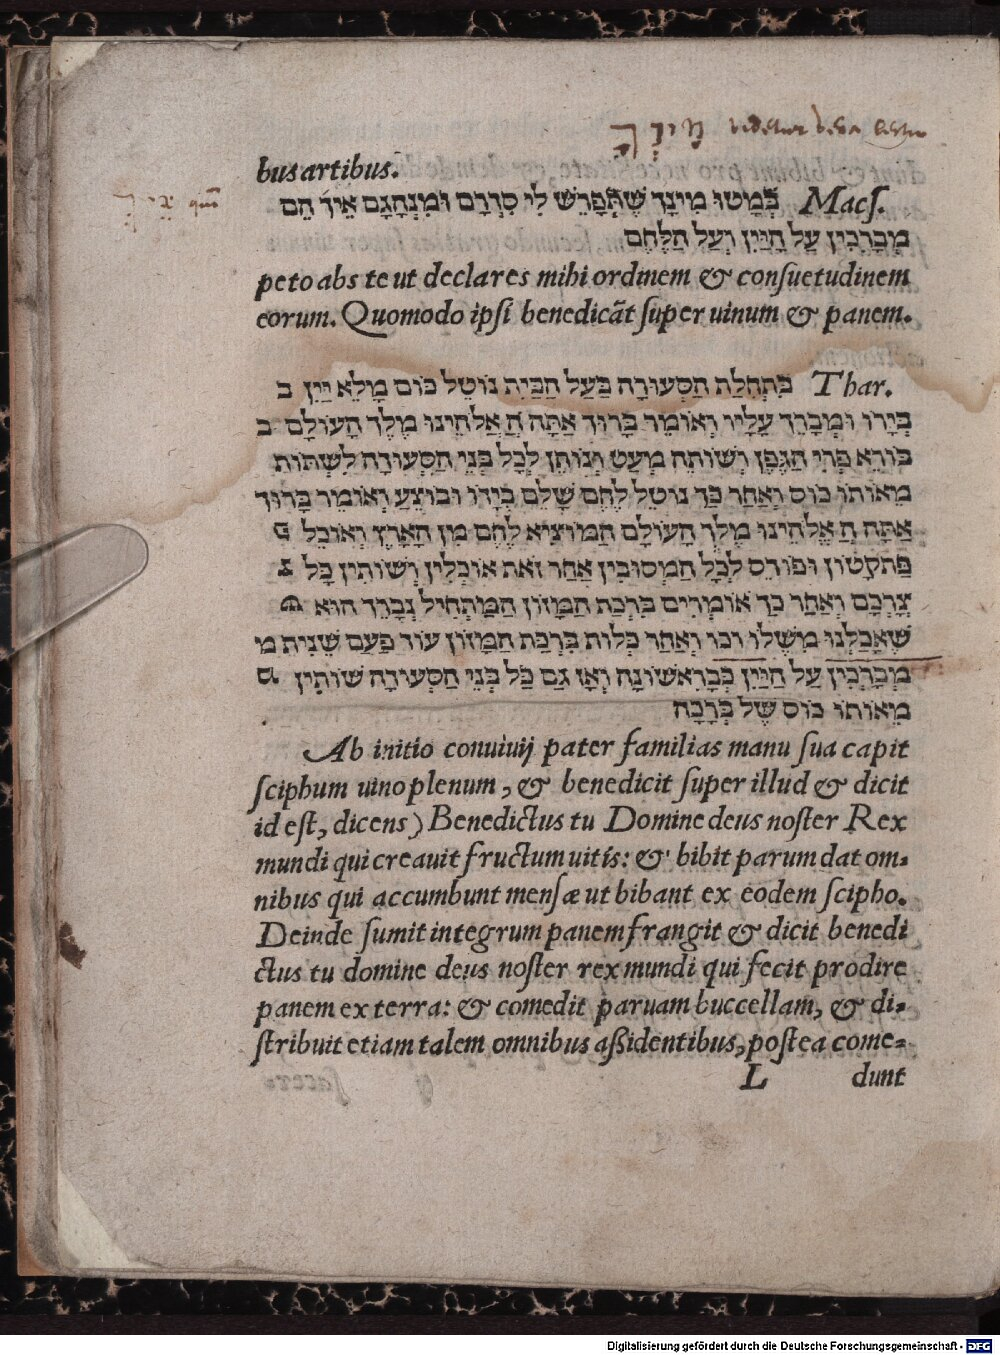 מִינָךְ videtur
bus artibus.
quō
Macs. בְּמָטוּ מִינָךְ שֶׁתְּפָרֵשׁ לִי סִדְרָם וּמִנְהָגָם אֵיךְ הֵם
מְבָרְכִין עַל הַיַּיִן וְעַל הַלֶּחֶם
peto abs te ut declares mihi ordinem & consuetudinem
eorum. Quomodo ipsi benedicāt super uinum & panem.
Thar. בִּתְחִלַּת הַסְּעוּדָה בַּעַל הַבַּיִת נוֹטֵל כּוֹס מָלֵא יַיִן ב
בְּיָדוֹ וּמְבָרֵךְ עָלָיו וְאוֹמֵר בָּרוּךְ אַתָּה הָ אֱלֹהֵינוּ מֶלֶךְ הָעוֹלָם ב
בּוֹרֵא פְּרִי הַגֶּפֶן וְשׁוֹתֶה מְעַט וְנוֹתֵן לְכָל בְּנֵי הַסְּעוּדָה לִשְׁתּוֹת
מֵאוֹתוֹ כּוֹס וְאַחַר כַּךְ נוֹטֵל לֶחֶם שָׁלֵם בְּיָדוֹ וּבוֹצֵעַ וְאוֹמֵר בָּרוּךְ
אַתָּה הָ אֱלֹהֵינוּ מֶלֶךְ הָעוֹלָם הַמּוֹצִיא לֶחֶם מִן הָאָרֶץ וְאוֹכֵל
וּפוֹרֵס לְכָל הַמְסוּבִּין אַחַר זֹאת אוֹכְלִין וְשׁוֹתִין כָּל
צָרְכָּם וְאַחַר כַּךְ אוֹמְרִים בִּרְכַּת הַמָּזוֹן הַמַּתְחִיל נְבָרֵךְ הוּא
שֶׁאָכַלְנוּ מִשֶּׁלּוֹ וכו וְאַחַר כְּלוֹת בִּרְכַּת הַמָּזוֹן עוֹד פַּעַם שֵׁנִית מ
מְבָרְכִין עַל הַיַּיִן כְּבָרִאשׁוֹנָה וְאָז גַּם כָּל בְּנֵי הַסְּעוּדָה שׁוֹתִין
מֵאוֹתוֹ כּוֹס שֶׁל בְּרָכָה
Ab initio conuiuij pater familias manu sua capit
sciphum uino plenum, & benedicit super illud & dicit
id est, dicens) Benedictus tu Domine deus noster Rex
mundi qui creauit fructum uitis: & bibit parum dat om-
nibus qui accumbunt mensæ ut bibant ex eodem scipho.
Deinde sumit integrum panem frangit & dicit benedi
ctus tu domine deus noster rex mundi qui fecit prodire
panem ex terra: & comedit paruam buccellam, & di-
stribuit etiam talem omnibus aßidentibus, postea come-
L dunt
Digitalisierung gefördert durch die Deutsche Forschungsgemeinschaft - DFG